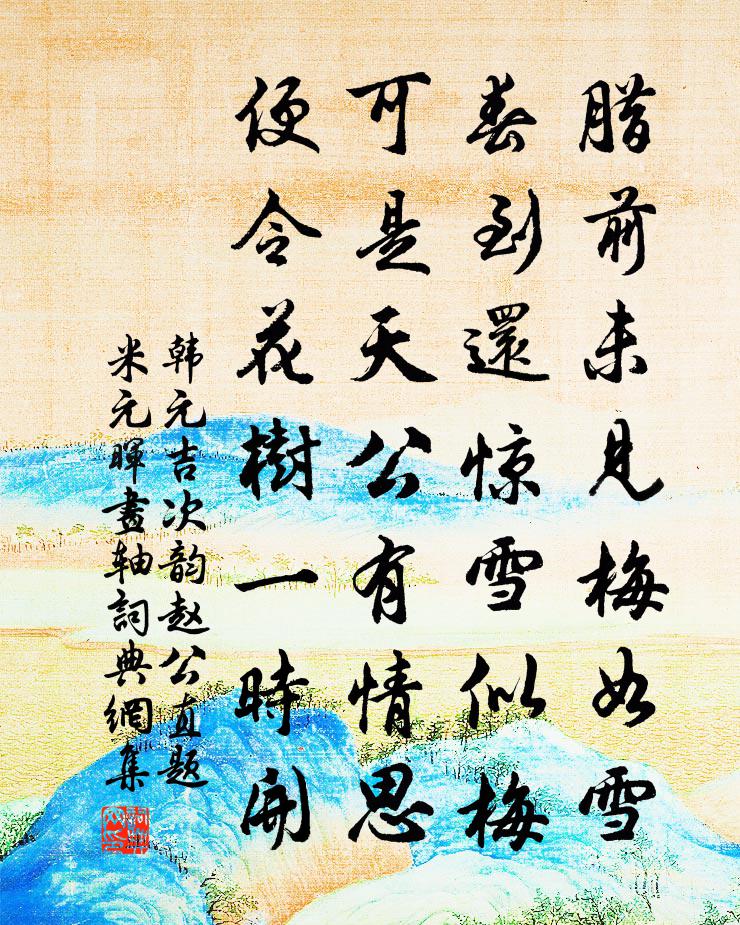 腊前未見梅如雪
春到還惊雪似梅
可是天公有情思
便令花樹一時開
韩元吉次韵赵公直题
米元暉畫轴詞典網集